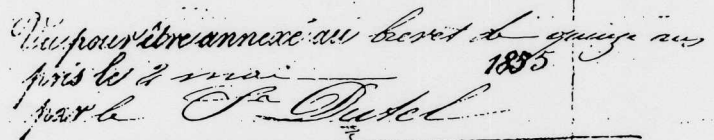 Vu pour être annexé au brevet de quinze ans
pris le 2 mai 1855
par le Sr Dutel